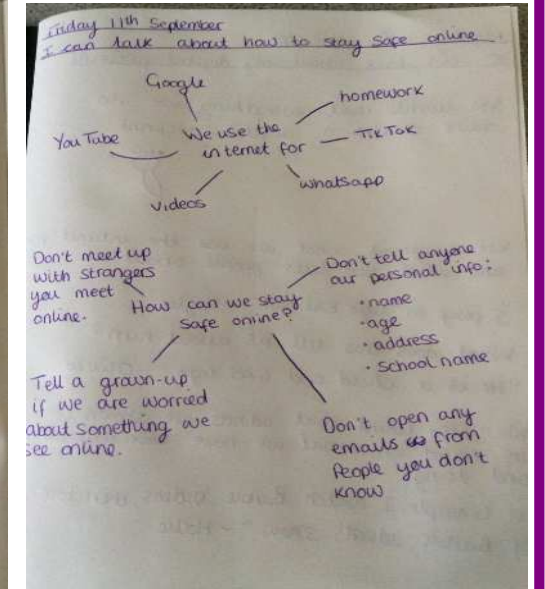 Friday 11th September
I can talk about how to stay safe online
Google
homework
You Tube
We use the
internet for
TikTok
whatsapp
videos
Don't meet up
with strangers
you meet
online.
How can we stay
safe online?
Don't tell anyone
our personal info:
• name
• age
• address
• School name
Tell a grown-up
if we are worried
about something we
see online.
Don't open any
emails from
people you don't
know